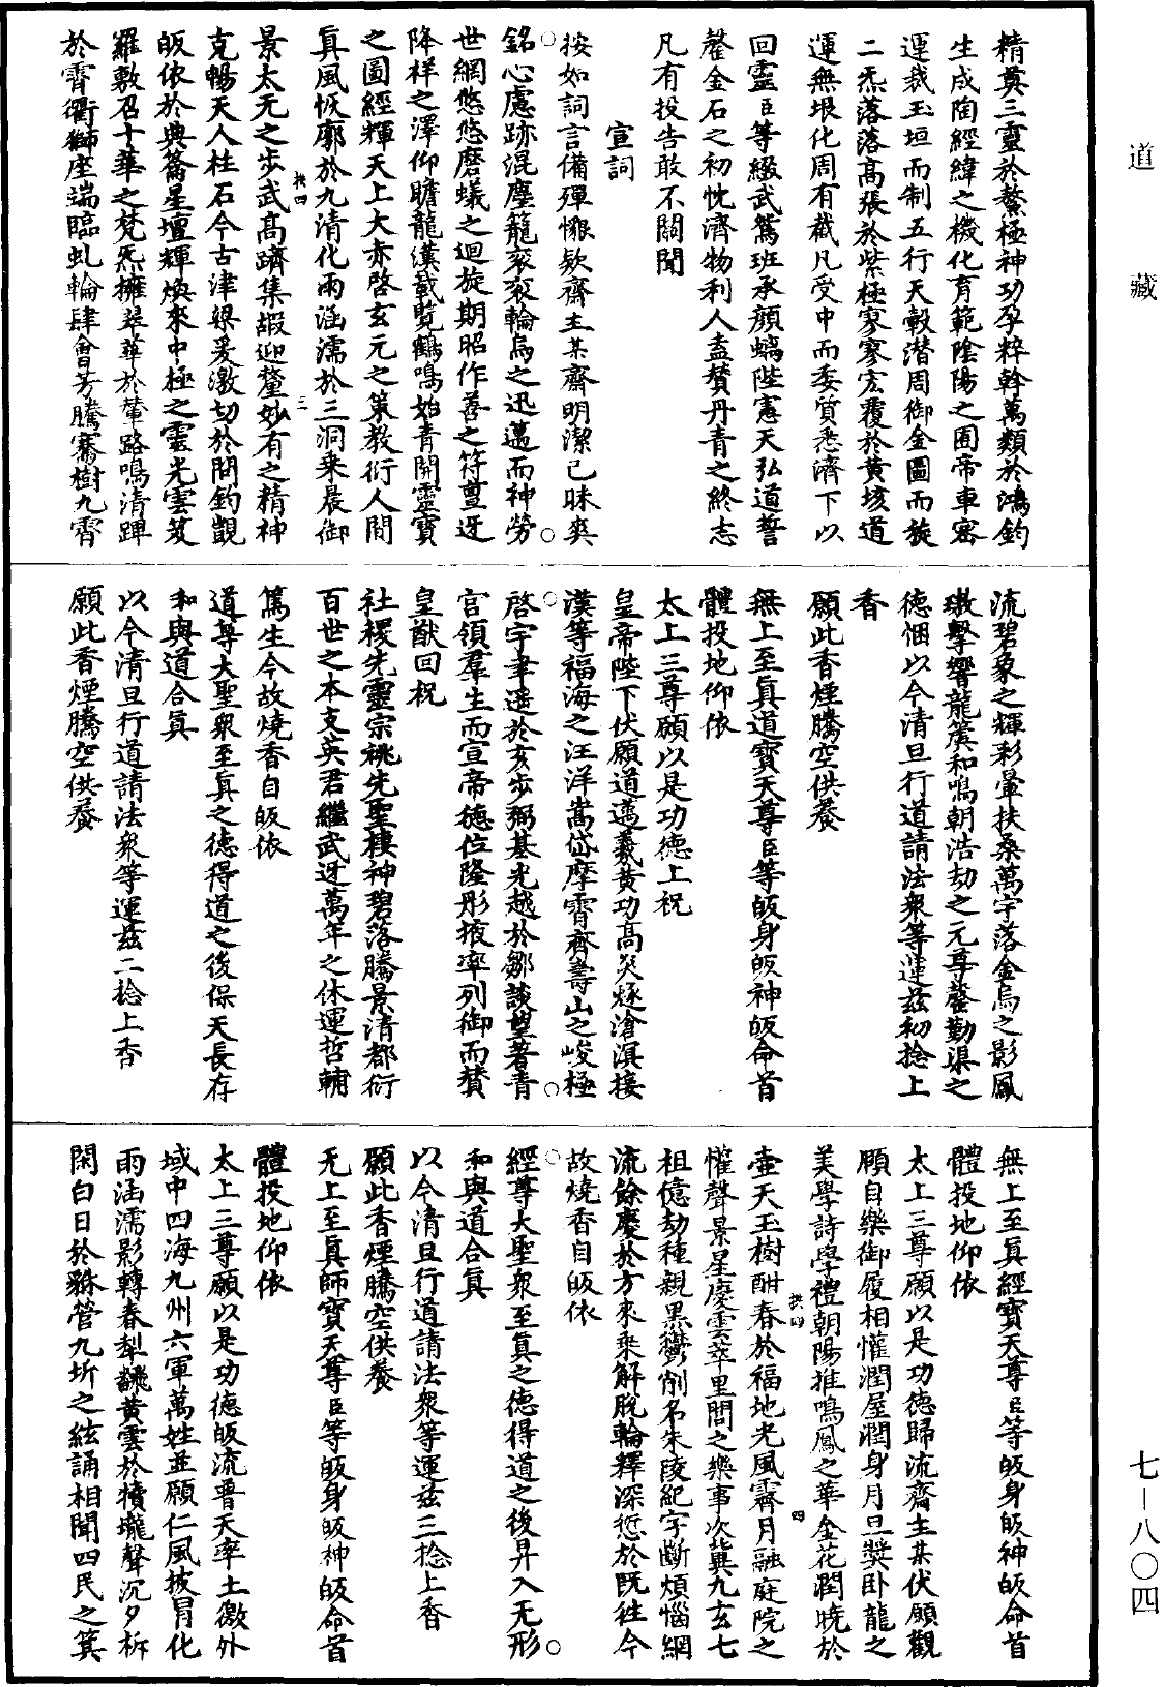 道藏
七—八〇四
精奠三靈於鰲極神功孕粹斡萬類於鴻鈞
生成陶經緯之機化育範陰陽之囿帝車密
運裁玉垣而制五行天轂潛周御金圖而旋
二炁落落高張於紫極寥寥宏覆於黃垓道
運無垠化周有截凡受中而委質悉濟下以
回靈臣等綴武鵷班承顏螭陛憲天弘道誓
罄金石之初忱濟物利人盍贊丹青之終志
凡有投告敢不關聞
宣詞
按如詞言備殫懇欵齋主某齋明潔己昧爽
銘心處跡混塵籠衮衮輪烏之迅邁而神勞
世網悠悠磨蟻之迴旋期昭作善之符亶迓
降祥之澤仰瞻龍漢載覽鶴鳴始青開靈寶
之圖經輝天上大赤啓玄元之策教衍人間
眞風恢廓於九清化雨涵濡於三洞乘晨御
景太无之步武高躋集嘏迎釐妙有之精神
克暢天人柱石今古津梁爰激切於問釣覬
皈依於典籥星壇輝煥來中極之雲光雲笈
羅敷召十華之梵炁擁翠華於輦路鳴清蹕
於霄衢獅座端臨虬輪肆會芳騰騫樹九霄
流碧象之輝彩暈扶桑萬宇落金烏之影鳳
璈擊響龍簧和鳴朝浩劫之元尊罄勤渠之
德悃以今清旦行道請法衆等運茲初捻上
香
願此香煙騰空供養
無上至眞道寶天尊臣等皈身皈神皈命首
體投地仰依
太上三尊願以是功德上祝
皇帝陛下伏願道邁羲黃功高炎燧滄溟接
漢等福海之汪洋嵩岱摩霄齊壽山之峻極
啓宇聿遥於亥步弼基光越於鄒談望著青
宮領羣生而宣帝德位隆彤掖率列御而贊
皇猷回祝
社稷先靈宗祧先聖棲神碧落騰景清都衍
百世之本支英君繼武迓萬年之休運哲輔
篤生今故燒香自皈依
道尊大聖衆至眞之德得道之後保天長存
和與道合眞
以今清旦行道請法衆等運茲二捻上香
願此香煙騰空供養
無上至眞經寶天尊臣等皈身皈神皈命首
體投地仰依
太上三尊願以是功德歸流齋主某伏願觀
頤自樂御履相懽潤屋潤身月旦獎卧龍之
美學詩學禮朝陽推鳴鳳之華金花潤曉於
壺天玉樹酣春於福地光風霽月融庭院之
懽聲景星慶雲萃里閭之樂事次冀九玄七
祖億劫種親黑鬱削名朱陵紀字斷煩惱網
流餘慶於方來乘解脫輪釋深愆於既往今
故燒香自皈依
經尊大聖衆至眞之德得道之後昇入无形
和與道合眞
以今清旦行道請法衆等運茲三捻上香
願此香煙騰空供養
无上至眞師寶天尊臣等皈身皈神皈命首
體投地仰依
太上三尊願以是功德皈流普天率土徼外
域中四海九州六軍萬姓並願仁風披冒化
雨涵濡影轉春犁飜黃雲於犢壠聲沉夕柝
閑白日於貅營九圻之絃誦相聞四民之箕